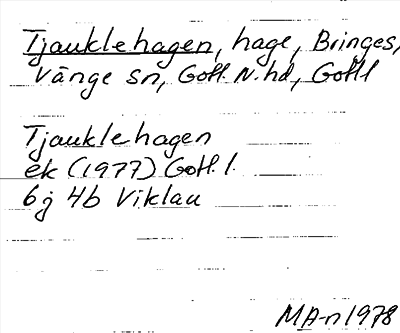 Tjauklehagen, hage, Bringes,
Vänge sn, Gotl. N. hd, Gotl l
Tjauklehagen
ek (1977) Gotl. l.
6j 4b Viklau
MA-n 1978